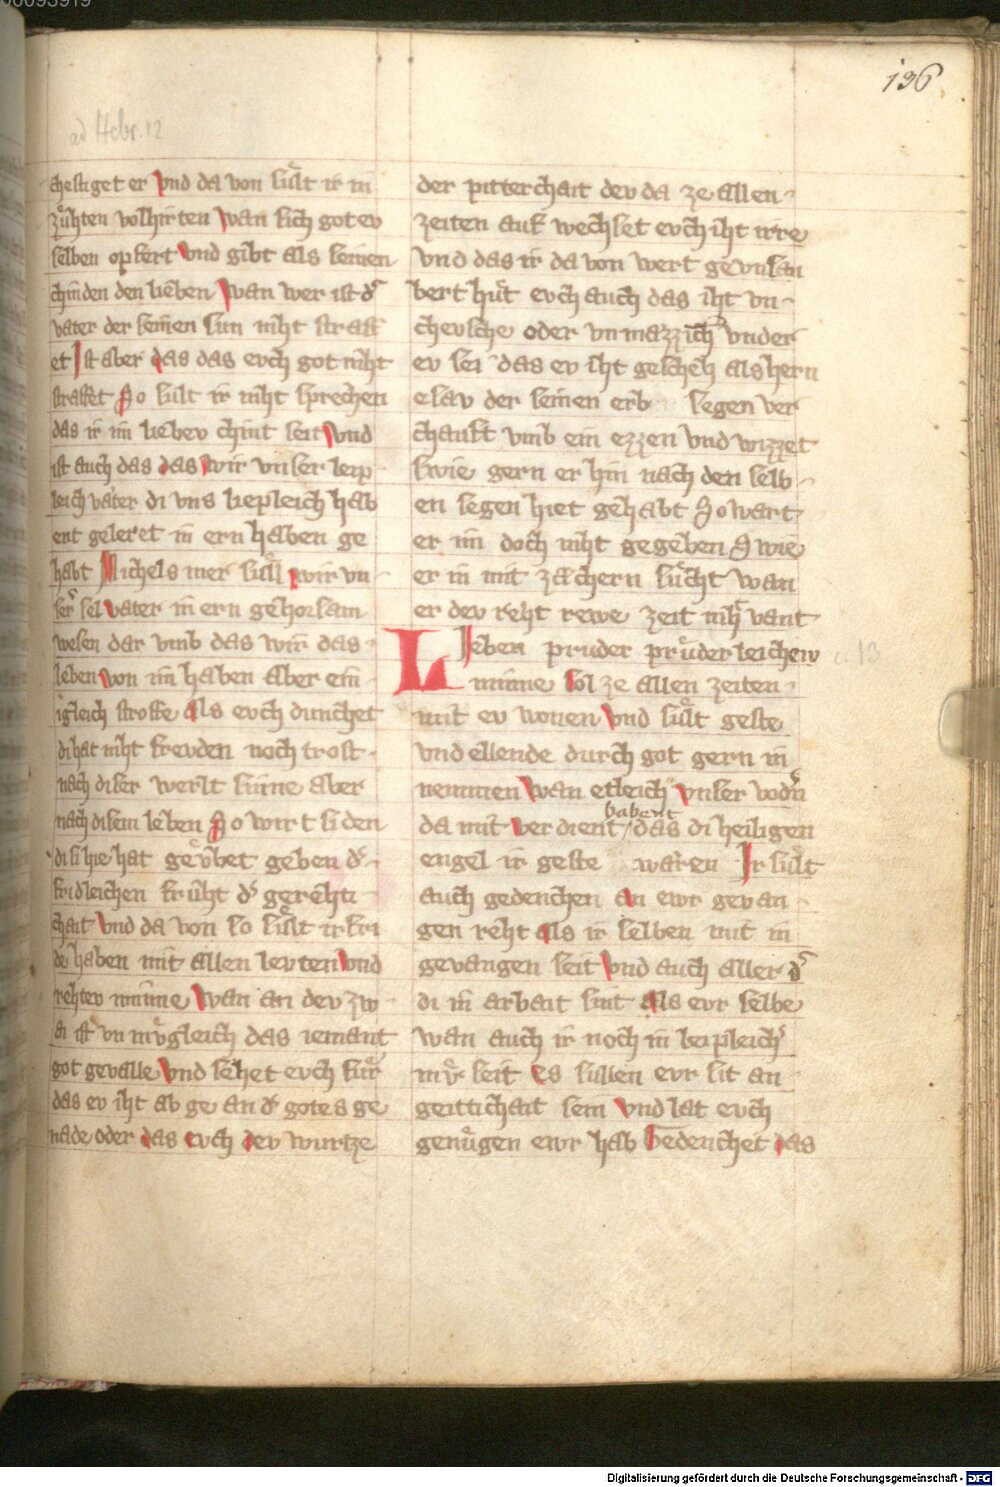 00093919
136
ad Hebr. 12
chestiget er vnd da von suͤlt ir in
zuͤhten volhirten wan sich got ev
selben opfert vnd gibt als seinen
chinden den lieben wan wer ist dˢ
vater der seinen sun niht straff
et Ist aber das das evch got niht
straffet So sult ir niht sprechen
das ir im liebev chint seit vnd
ist auch das das wir vnser leip
leich vater di vns liepleich hab
ent geleret in ern haben ge
habt Michels mer sull wir vn
serˢ sel vater in ern gehorsam
wesen dar vmb das wir das
leben von im haben aber ein
igleich stroffe als evch dunchet
di hat niht frevden noch trost
nach diser werlt sinne aber
nach disem leben So wirt si den
di si hie hat geuͤbet geben dˢ
fridleichen fruͤht dˢ gerehti
chait vnd da von so suͤlt ir fri
de haben mit allen levten vnd
rehtev minne wan an dev zw
ai ist vn muͤgleich das iemant
got gevalle vnd sehet evch fuͤr
das ev iht ab ge an dˢ gotes ge
nade oder das evch dev wurtze
der pitterchait dev da ze allen
zeiten auf wechset evch iht irre
vnd das ir da von wert gevnsau
bert huͤt evch auch das iht vn
chevsche oder vnmazzichˢ vnder
ev sei das ev iht gescheh als hern
esav der seinen erb segen ver
chauft vmb ein ezzen vnd wizzet
swie gern er hin nach den selb
en segen hiet gehabt So wart
er im doch niht gegeben Swie
er in mit zæchern suͤcht wan
er dev reht rewe zeit niht vant
Lieben pruder pruͤderleichew
c. 13
minne sol ze allen zeiten
mit ev wonen vnd suͤlt geste
vnd ellende durch got gern in
nemmen wan etleich vnser vodˢn
habent
da mit verdient / das di heiligen
engel ir geste waren Ir suͤlt
auch gedenchen an ewr gevan
gen reht als ir selben mit in
gevangen seit vnd auch aller dˢ
di in arbait sint als evr selbe
wan auch ir noch in leipleichˢ
muͤ seit Es sullen evr sit an
geittichait sein vnd lat evch
genuͤgen ewr hab Gedenchet das
Digitalisierung gefördert durch die Deutsche Forschungsgemeinschaft - DFG